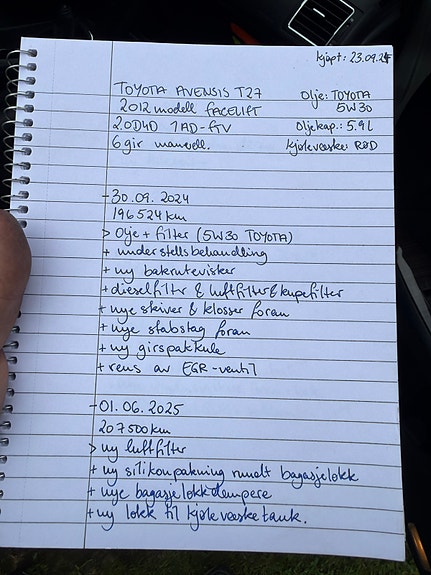 kjøpt: 23.09.24
TOYOTA AVENSIS T27
2012 modell FACELIFT
2.0D4D 1AD-FTV
6 gir manuell.
Olje: TOYOTA
5W30
Oljekap.: 5.9L
Kjølevæske: RØD
- 30.09.2024
196524 km
> Olje + filter (5W30 TOYOTA)
+ understellsbehandling
+ ny bakrutevisker
+ dieselfilter & luftfilter & kupefilter
+ nye skiver & klosser foran
+ nye stabstag foran
+ ny girspakkule
+ rens av EGR-ventil
- 01.06.2025
207500km
> ny luftfilter
+ ny silikonpakning rundt bagasjelokk
+ nye bagasjelokkdempere
+ ny lokk til kjølevæsketank.